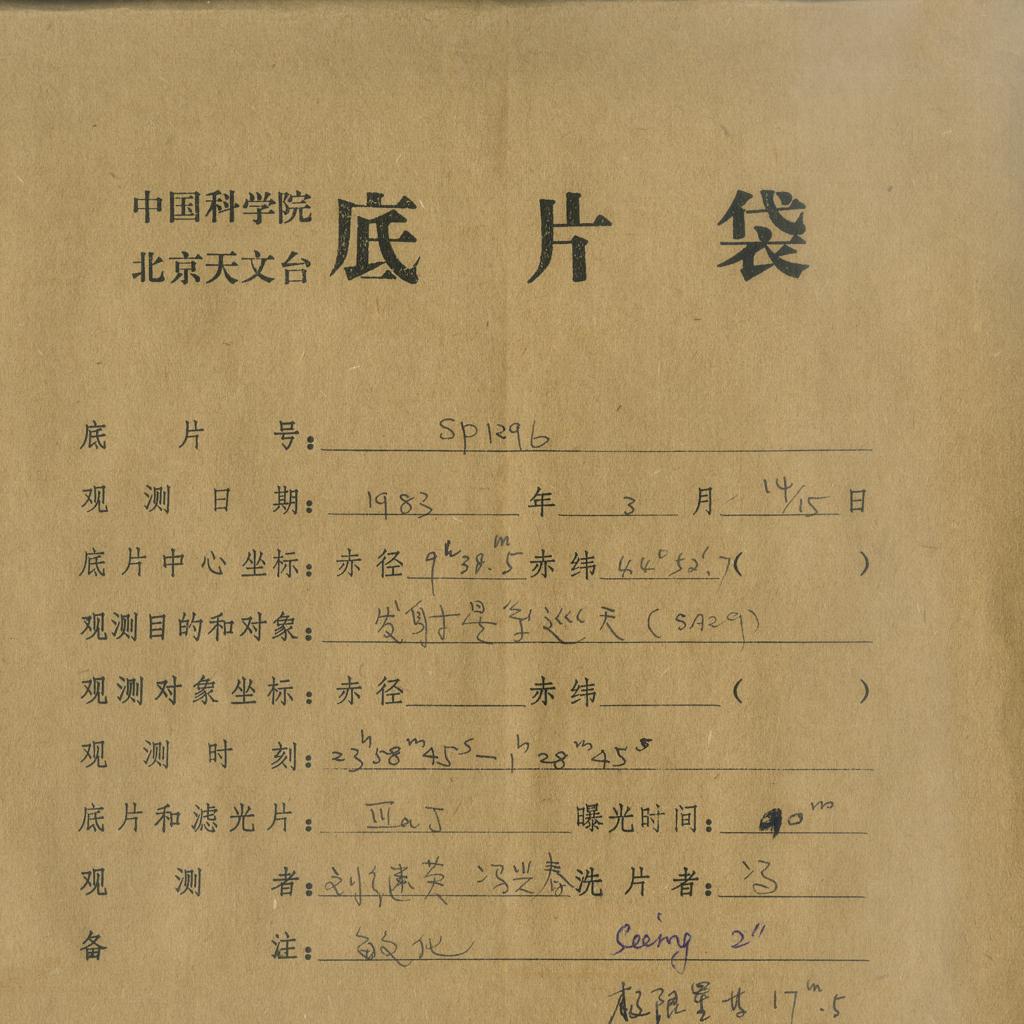 中国科学院
北京天文台
底片袋
底片号：SP1296
观测日期：1983年3月14/15日
底片中心坐标：赤径9ʰ38ᵐ.5赤纬44°52′.7(　)
观测目的和对象：发射星系巡天(SA29)
观测对象坐标：赤径　赤纬　(　)
观测时刻：23ʰ58ᵐ45ˢ—1ʰ28ᵐ45ˢ
底片和滤光片：ⅢaJ 曝光时间：90ᵐ
观测者：刘继英 冯兴春 洗片者：冯
备注：敏化 Seeing 2″
极限星等 17ᵐ.5